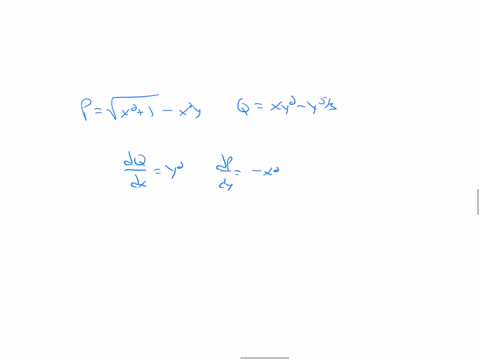 P = √(x²+1) − x²y    Q = xy² − y^5/3
dQ/dx = y²    dP/dy = −x²